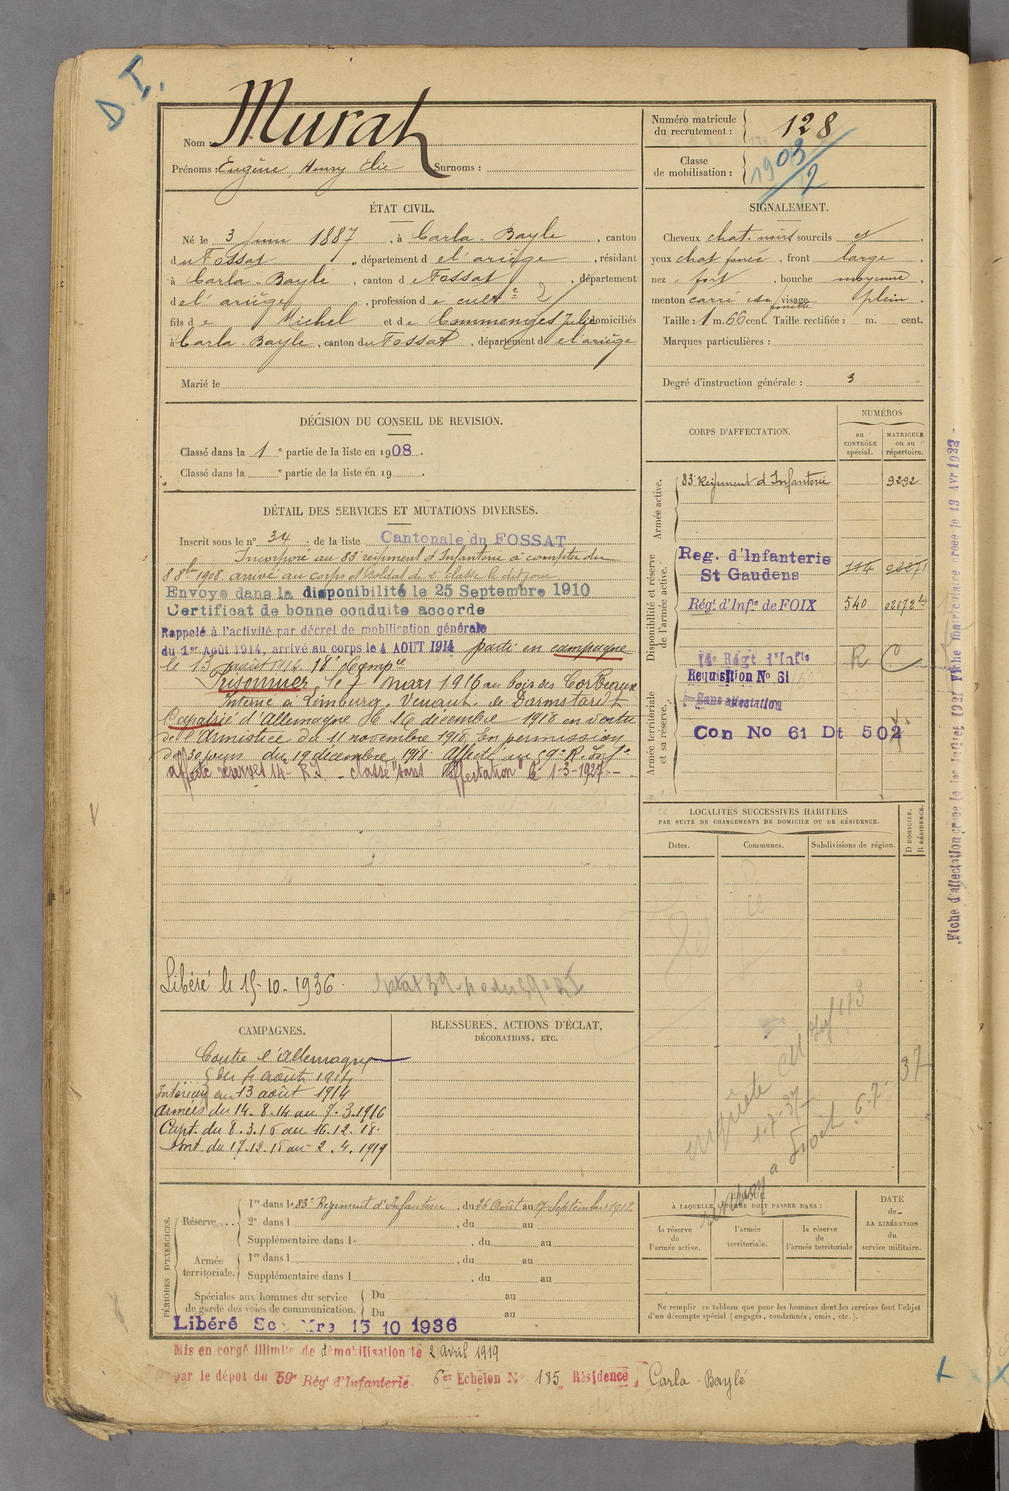 D. I.
Nom : Murat
Prénoms : Eugène, Henry Elie Surnoms :
Numéro matricule du recrutement : 128
Classe de mobilisation : 1903/12
ÉTAT CIVIL.
Né le 3 Juin 1887, à Carla-Bayle, canton
du Fossat, département de l'ariège, résidant
à Carla-Bayle, canton d Fossat, département
de l'ariège, profession de cultr 2
fils de Michel et de Commenges Julie domiciliés
à Carla-Bayle, canton du Fossat, département de l'ariège
Marié le
SIGNALEMENT.
Cheveux chat. noirs sourcils id
yeux chat foncé, front large
nez fort, bouche moyenne
menton carré visage plein
fossette
Taille : 1 m. 66 cent. Taille rectifiée : m. cent.
Marques particulières :
Degré d'instruction générale : 3
DÉCISION DU CONSEIL DE REVISION.
Classé dans la 1e partie de la liste en 1908.
Classé dans la e partie de la liste en 19 .
DÉTAIL DES SERVICES ET MUTATIONS DIVERSES.
Inscrit sous le n° 34 de la liste Cantonale du FOSSAT
Incorporé au 83e régiment d'Infanterie à compter du
8 8bre 1908. arrivé au corps et soldat de 2e classe le dit jour
Envoyé dans la disponibilité le 25 Septembre 1910
Certificat de bonne conduite accorde
Rappelé à l'activité par décret de mobilisation générale
du 1er Août 1914, arrivé au corps le 4 AOUT 1914 parti en campagne
le 13 août 1914 18e Compie
Prisonnier le 7 mars 1916 au bois des Corbeaux
Interné à Limburg, venant de Darmstardt
Rapatrié d'Allemagne le 16 décembre 1918 en vertu
de l'Armistice du 11 novembre 1918. En permission
de 30 jours du 19 décembre 1918. Affecté au 59e R. Infie
affecté réserves 14e R.I. - classé "sans affectation" le 1-3-1927
Libéré le 15-10-1936.
CORPS D'AFFECTATION.
NUMÉROS
au CONTRÔLE spécial.
MATRICULE ou au répertoire.
Armée active.
83e Régiment d'Infanterie 9292
Disponibilité et réserve de l'armée active.
Reg. d'Infanterie
St Gaudens
Régt d'Infie de FOIX 540
14e Régt d'Infie R C
Armée territoriale et sa réserve.
Requisition No 61
Sans affectation
Con No 61 Dt 502
LOCALITÉS SUCCESSIVES HABITÉES
PAR SUITE DE CHANGEMENTS DE DOMICILE OU DE RÉSIDENCE.
Dates. Communes. Subdivisions de région.
D DOMICILE.
R RÉSIDENCE.
enquête
1-7-37
37
CAMPAGNES.
Contre l'Allemagne
du 4 août 1914
Intérieur au 13 août 1914
Armées du 14.8.14 au 7.3.1916
Capt. du 8.3.16 au 16.12.18.
Int. du 17.12.18 au 2.4.1919
BLESSURES, ACTIONS D'ÉCLAT,
DÉCORATIONS, ETC.
PÉRIODES D'EXERCICES.
Réserve...
1re dans le 83e Régiment d'Infanterie, du 26 Août au 17 Septembre 1912
2e dans l , du au
Supplémentaire dans l , du au
Armée territoriale.
1re dans l , du au
Supplémentaire dans l , du au
Spéciales aux hommes du service de garde des voies de communication. Du au
Du au
Libéré 15 10 1936
ÉPOQUE
À LAQUELLE L'HOMME DOIT PASSER DANS :
la réserve de l'armée active.
l'armée territoriale.
la réserve de l'armée territoriale
DATE de LA LIBÉRATION du service militaire.
Ne remplir ce tableau que pour les hommes dont les services font l'objet
d'un décompte spécial (engagés, condamnés, omis, etc.).
Mis en congé illimité de démobilisation le 2 Avril 1919
par le dépot du 59e Régt d'Infanterie. 6er Echelon No 185 Résidence Carla-Baylé